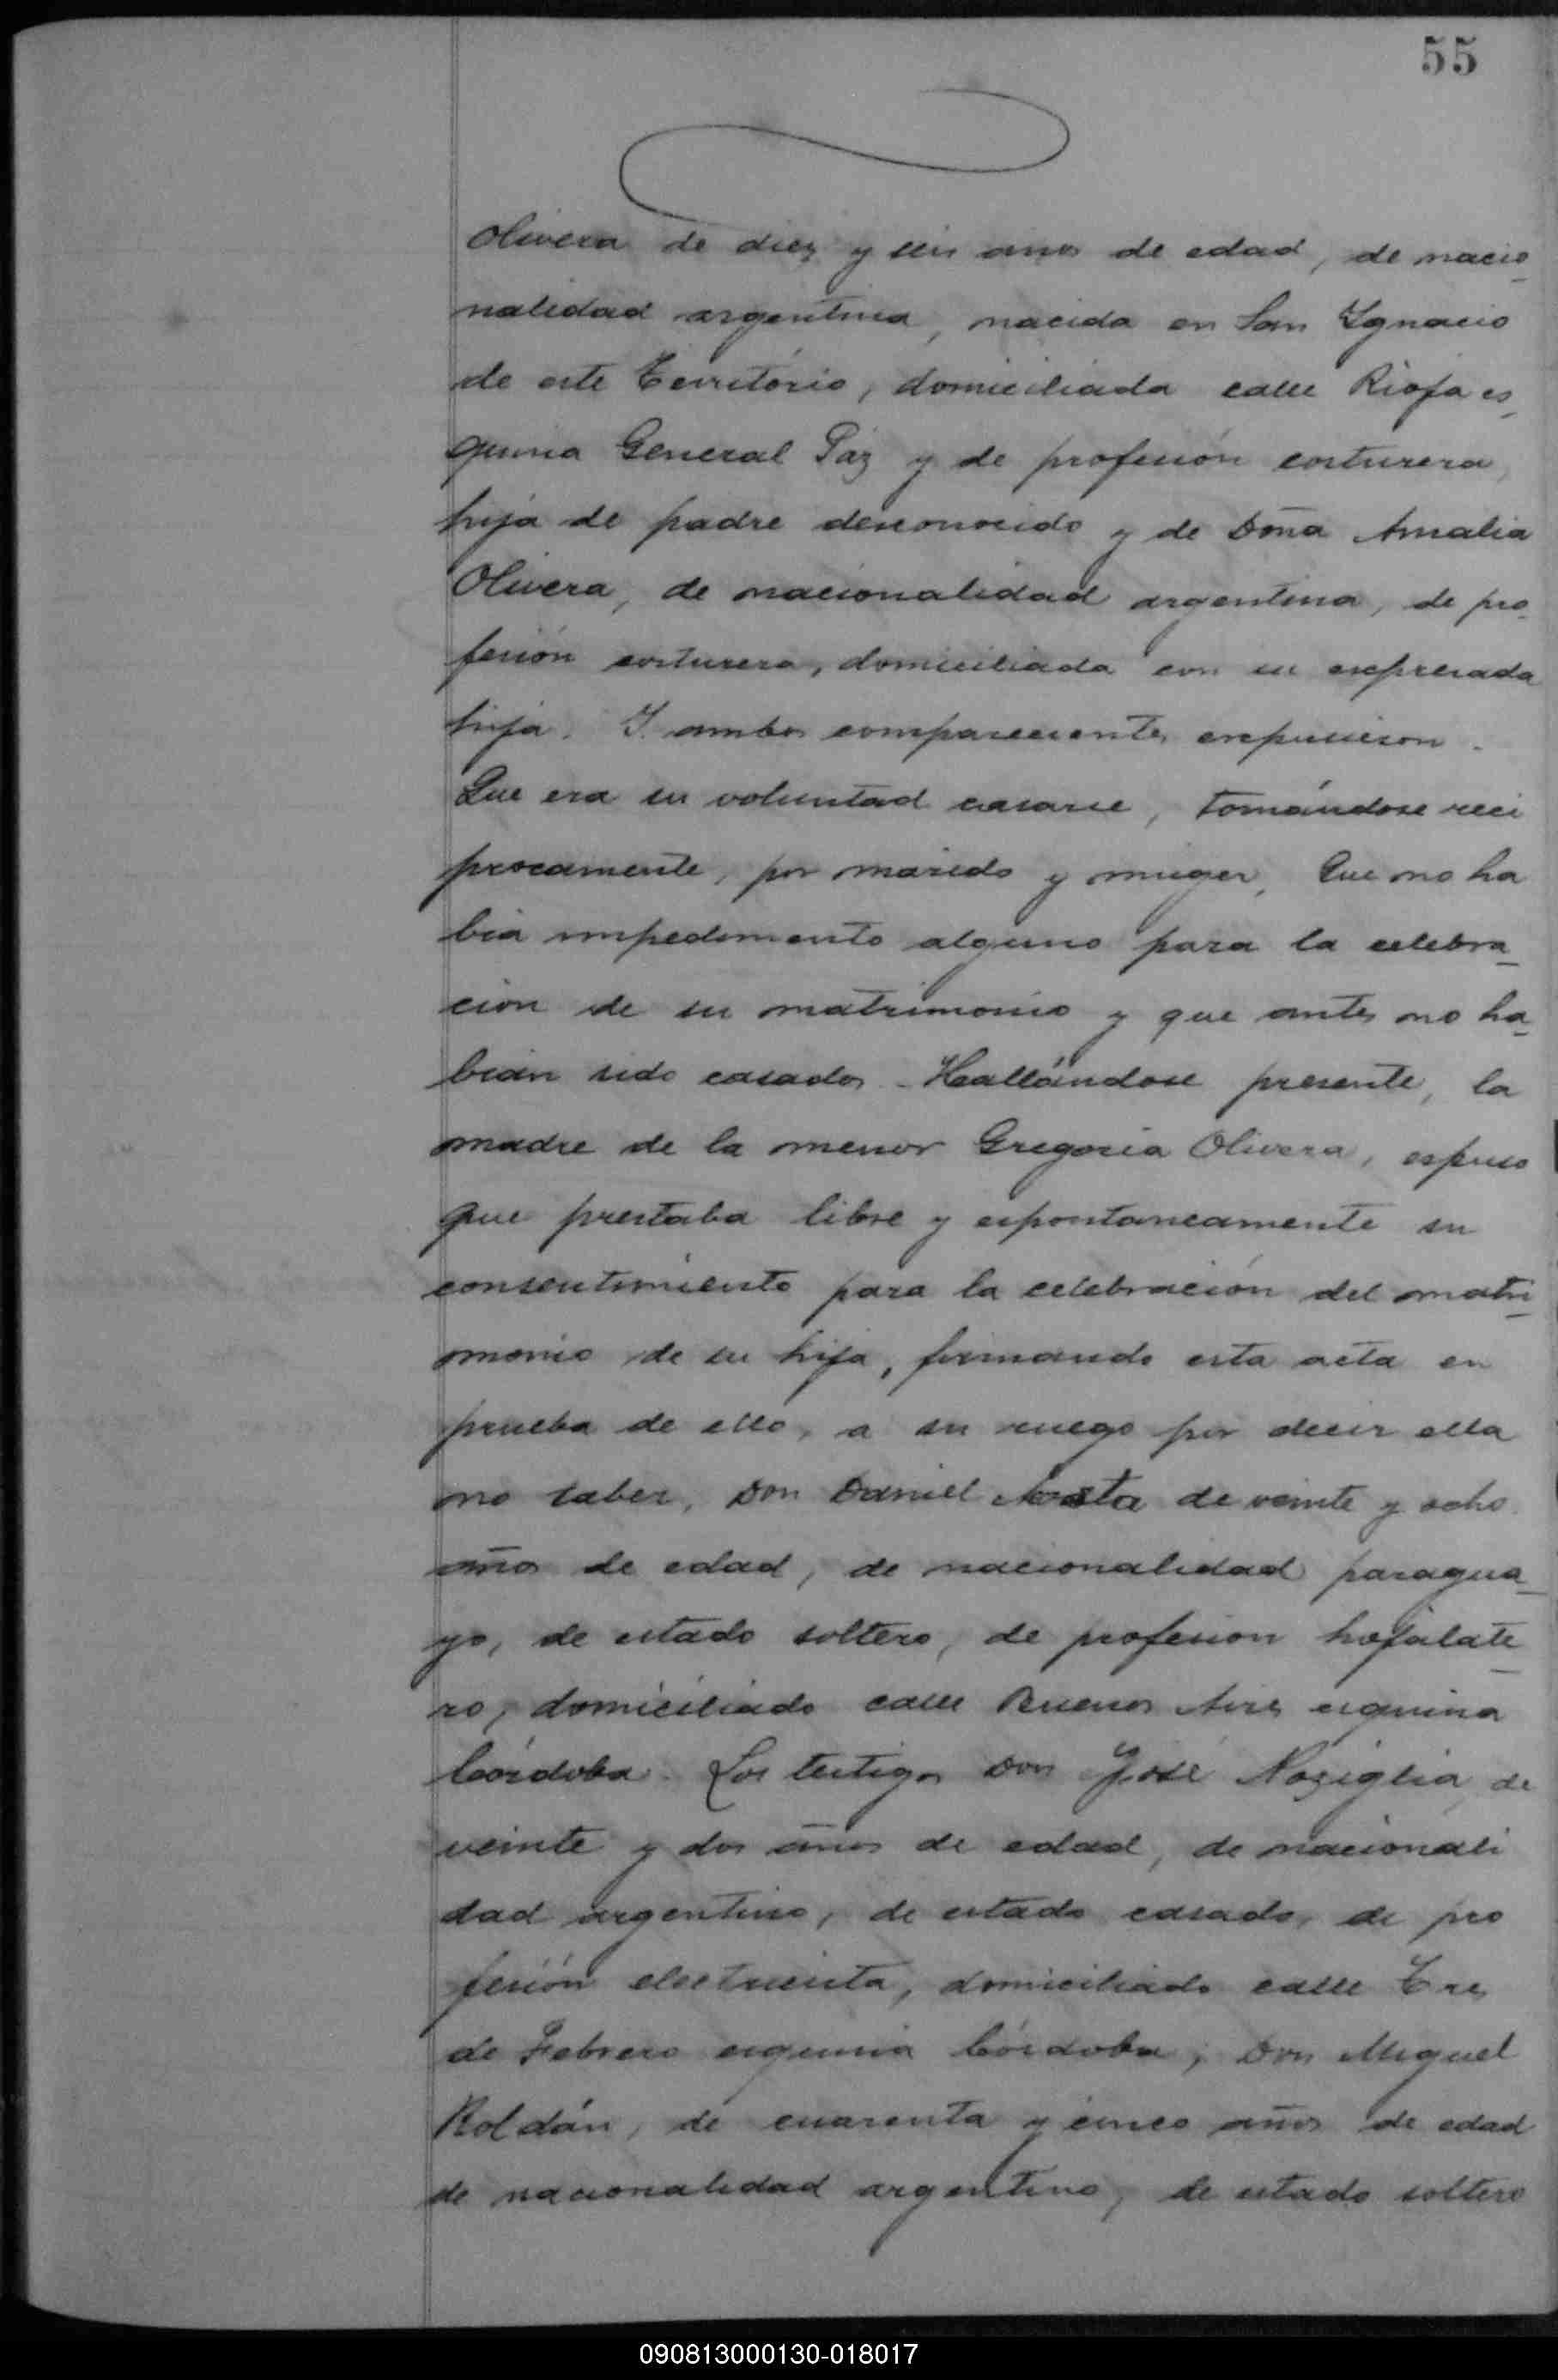 55
Olivera de diez y seis años de edad, de nacio-
nalidad argentina, nacida en San Ygnacio
de este Territorio, domiciliada calle Rioja es-
quina General Paz y de profesión costurera,
hija de padre desconocido y de Doña Amalia
Olivera, de nacionalidad argentina, de pro-
fesión costurera, domiciliada con su expresada
hija. Y ambos comparecientes expusieron.
Que era su voluntad casarse, tomándose reci
procamente, por marido y muger, Que no ha
bia impedimento alguno para la celebra-
cion de su matrimonio y que antes no ha-
bian sido casados. Hallándose presente, la
madre de la menor Gregoria Olivera, espuso
que prestaba libre y espontaneamente su
consentimiento para la celebración del matri-
monio de su hija, firmando esta acta en
prueba de ello, a su ruego por decir ella
no saber, Don Daniel de veinte y ocho
años de edad, de nacionalidad paragua-
yo, de estado soltero, de profesion hojalate-
ro, domiciliado calle Buenos Aires esquina
Córdoba. Los testigos Don José Noziglia, de
veinte y dos años de edad, de nacionali
dad argentino, de estado casado, de pro
fesión electricista, domiciliado calle Tres
de Febrero esquina Córdoba; Don Miguel
Roldán, de cuarenta y cinco años de edad
de nacionalidad argentino, de estado soltero
090813000130-018017